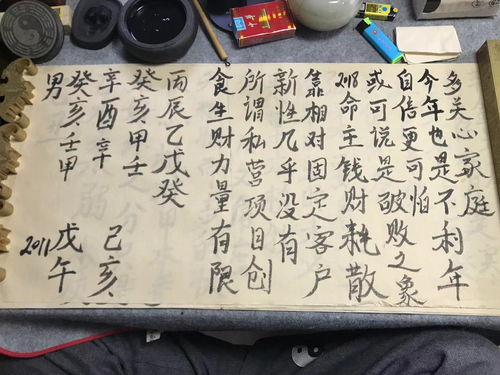 男
癸亥壬甲
2011
戊午
辛酉辛
己亥
癸亥甲壬
丙辰乙戊癸
食生财力量有限
所谓私营项目创
新性几乎没有
靠相对固定客户
2018命主钱财耗散
或可说是破败之象
自信更可怕
今年也是不利年
多关心家庭